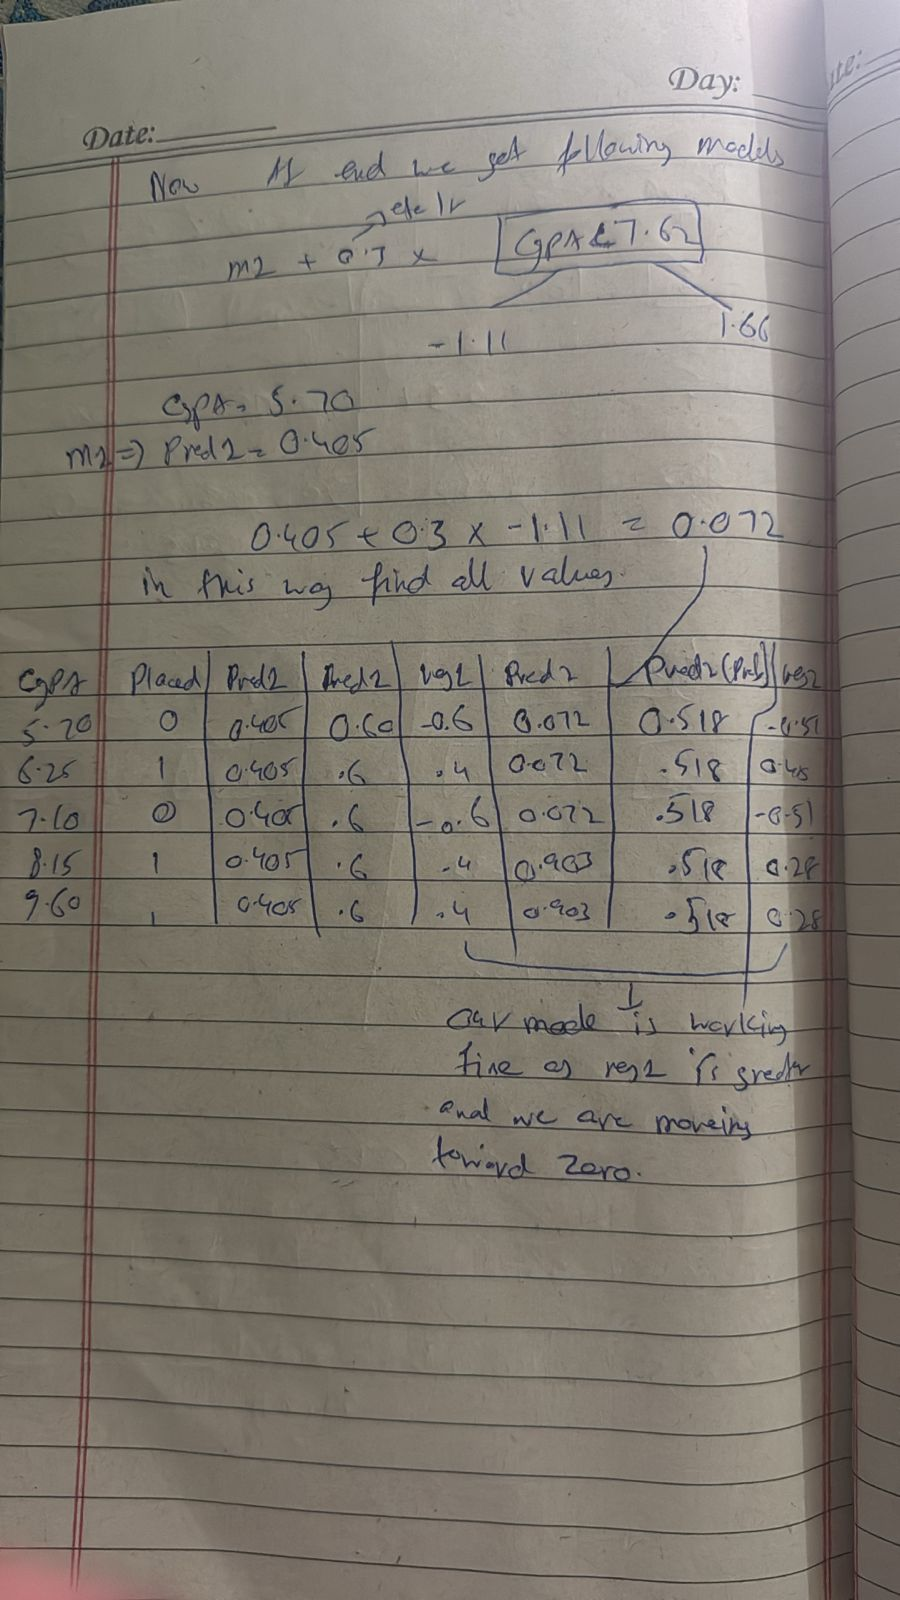 Day:
Date:
Now At end we get following models
m1 + 0.3 x
CGPA < 7.62
-1.11
1.66
CGPA = 5.70
m1 => Pred1 = 0.405
0.405 + 0.3 x -1.11 = 0.072
in this way find all values.
CGPA Placed Pred1 Pred1 res1 Pred2 Pred2 (Prob) res2
5.70 0 0.405 0.60 -0.6 0.072 0.518 -0.51
6.25 1 0.405 .6 .4 0.072 .518 0.48
7.10 0 0.405 .6 -0.6 0.072 .518 -0.51
8.15 1 0.405 .6 .4 0.903 .518 0.28
9.60 1 0.405 .6 .4 0.903 .518 0.28
our mode is working
fine as res1 is greater
and we are moveing
toward zero.